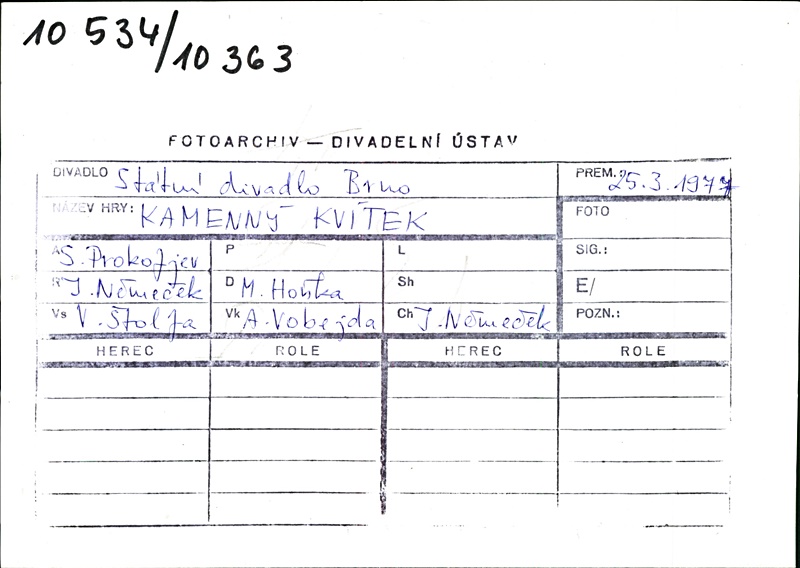 10 534/10 363
FOTOARCHIV — DIVADELNÍ ÚSTAV
DIVADLO Státní divadlo Brno PREM.: 25.3.1977
NÁZEV HRY: KAMENNÝ KVÍTEK FOTO
A S. Prokofjev P L SIG.:
R J. Němeček D M. Hoňka Sh E/
Vs V. Štolfa Vk A. Vobejda Ch J. Němeček POZN.:
HEREC ROLE HEREC ROLE